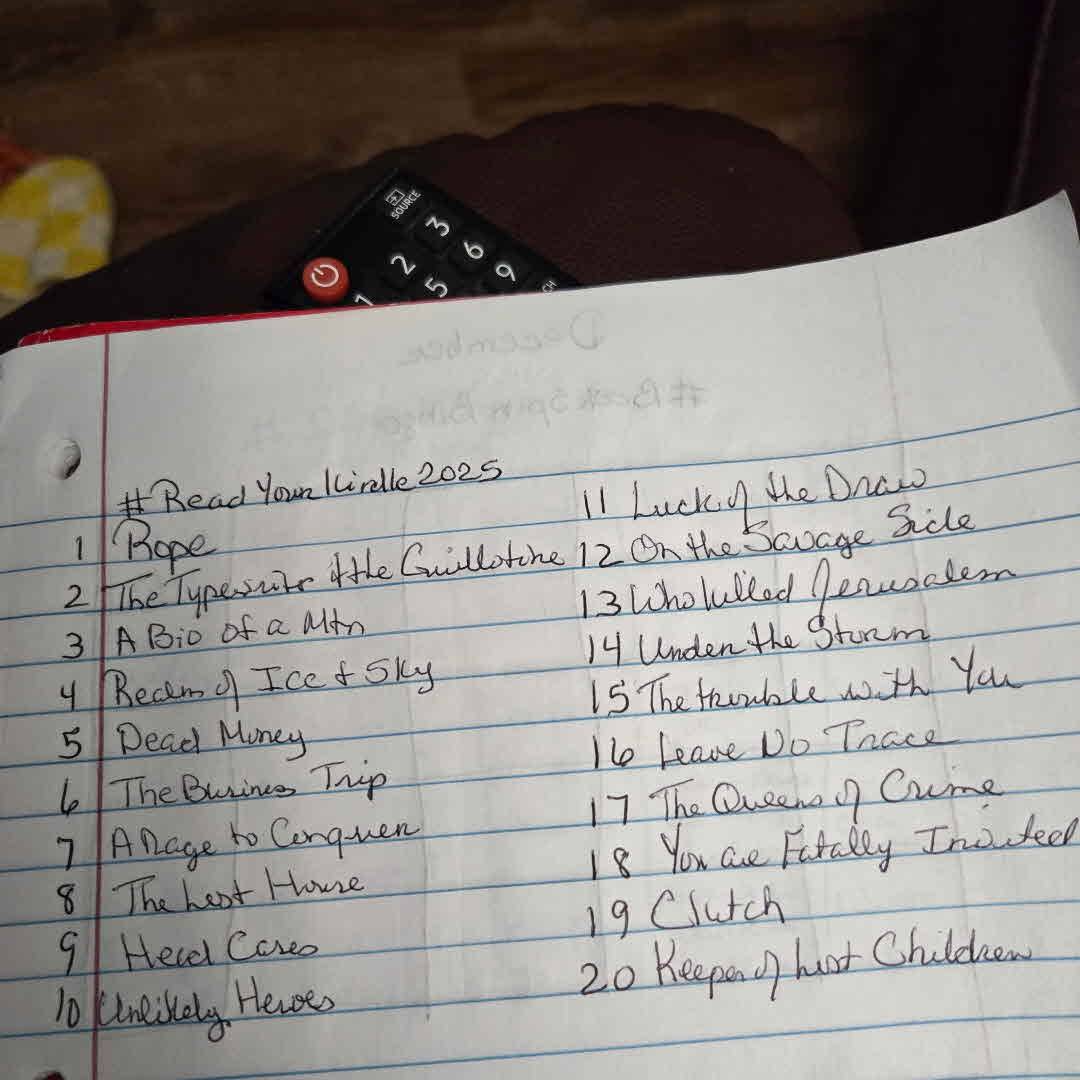 SOURCE
3
2 6
1 5 9
CH
December
#BookSpinBingo
#Read Your Kindle 2025
1 Rope
2 The Typewriter & the Guillotine
3 A Bio of a Mtn
4 Realm of Ice & Sky
5 Dead Money
6 The Business Trip
7 A Rage to Conquer
8 The Lost House
9 Head Cases
10 Unlikely Heroes
11 Luck of the Draw
12 On the Savage Side
13 Who killed Jerusalem
14 Under the Storm
15 The trouble with You
16 Leave No Trace
17 The Queens of Crime
18 You are Fatally Invited
19 Clutch
20 Keeper of Lost Children